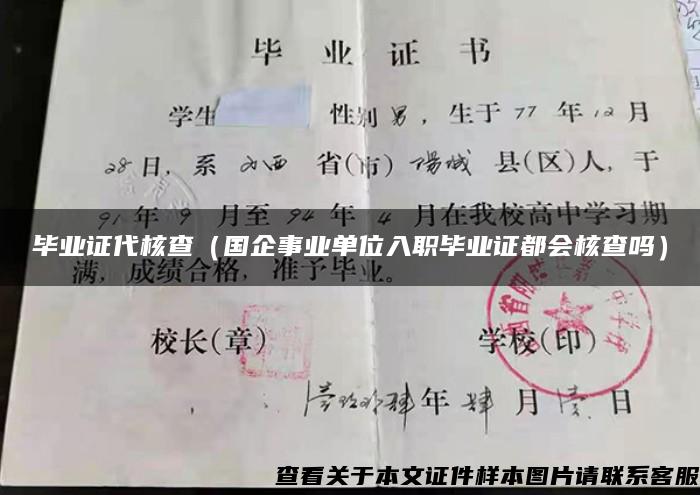 毕业证书
学生 性别男，生于77年12月
28日，系山西省(市)阳城县(区)人，于
91年9月至94年4月在我校高中学习期
毕业证代核查（国企事业单位入职毕业证都会核查吗）
满，成绩合格，准予毕业。
校长(章) 学校(印)
年肆月壹日
查看关于本文证件样本图片请联系客服